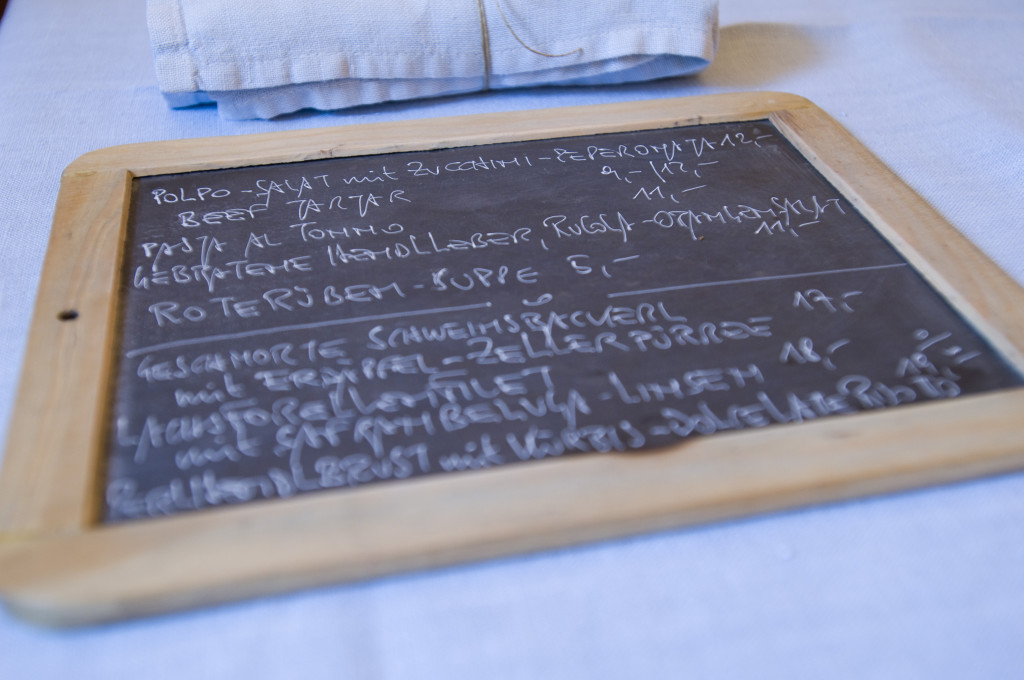 POLPO-SALAT mit ZUCCHINI-PEPERONATA 12,-
BEEF TARTAR 9,-/12,-
PASTA AL TONNO 11,-
GEBRATENE HENDLLEBER, RUGOLA-ORANGENSALAT 11,-
ROTERÜBEN-SUPPE 5,-
GESCHMORTE SCHWEINSBACKERL 17,-
mit ERDÄPFEL-ZELLERPÜRREE
LACHSFORELLENFILET 18,-
mit SAFRANBELUGA-LINSEN
PERLHENDLBRUST mit KÜRBIS- 19,-